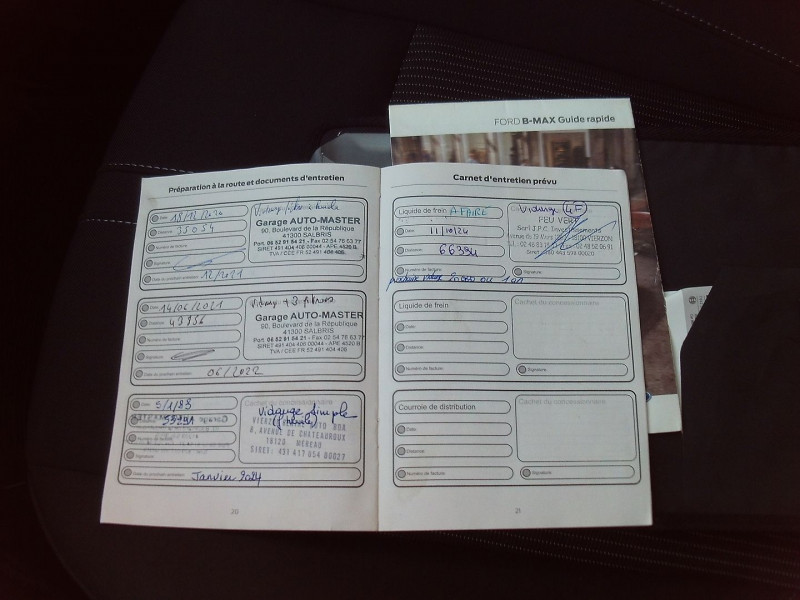 FORD B-MAX Guide rapide
Préparation à la route et documents d'entretien
Date 18/12/2020
Distance 35054
Numéro de facture
Signature
Date du prochain entretien 12/2021
Garage AUTO-MASTER
90, Boulevard de la République
41300 SALBRIS
Port. 06 52 91 84 21 - Fax 02 54 76 63 77
SIRET 491 404 406 00044 - APE 4520 B
TVA / CEE FR 52 491 404 406
Date 14/06/2021
Distance
Numéro de facture
Signature
Date du prochain entretien 06/2022
+ 3 filtres
Garage AUTO-MASTER
90, Boulevard de la République
41300 SALBRIS
Port. 06 52 91 84 21 - Fax 02 54 76 63 77
SIRET 491 404 406 00044 - APE 4520 B
TVA / CEE FR 52 491 404 406
Date
Distance
Numéro de facture
Signature
Date du prochain entretien Janvier 2024
Cachet du concessionnaire
Vidange simple
, AVENUE DE CHATEAUROUX
18120 MEREAU
SIRET: 431 417 054 00027
20
Carnet d'entretien prévu
Liquide de frein A FAIRE
Date 11/10/24
Distance 66394
Numéro de facture
Signature
Vidange
FEU VERT
Sarl J.P.C. Investissements
VIERZON
Liquide de frein
Date
Distance
Numéro de facture
Cachet du concessionnaire
Signature
Courroie de distribution
Date
Distance
Numéro de facture
Cachet du concessionnaire
Signature
21